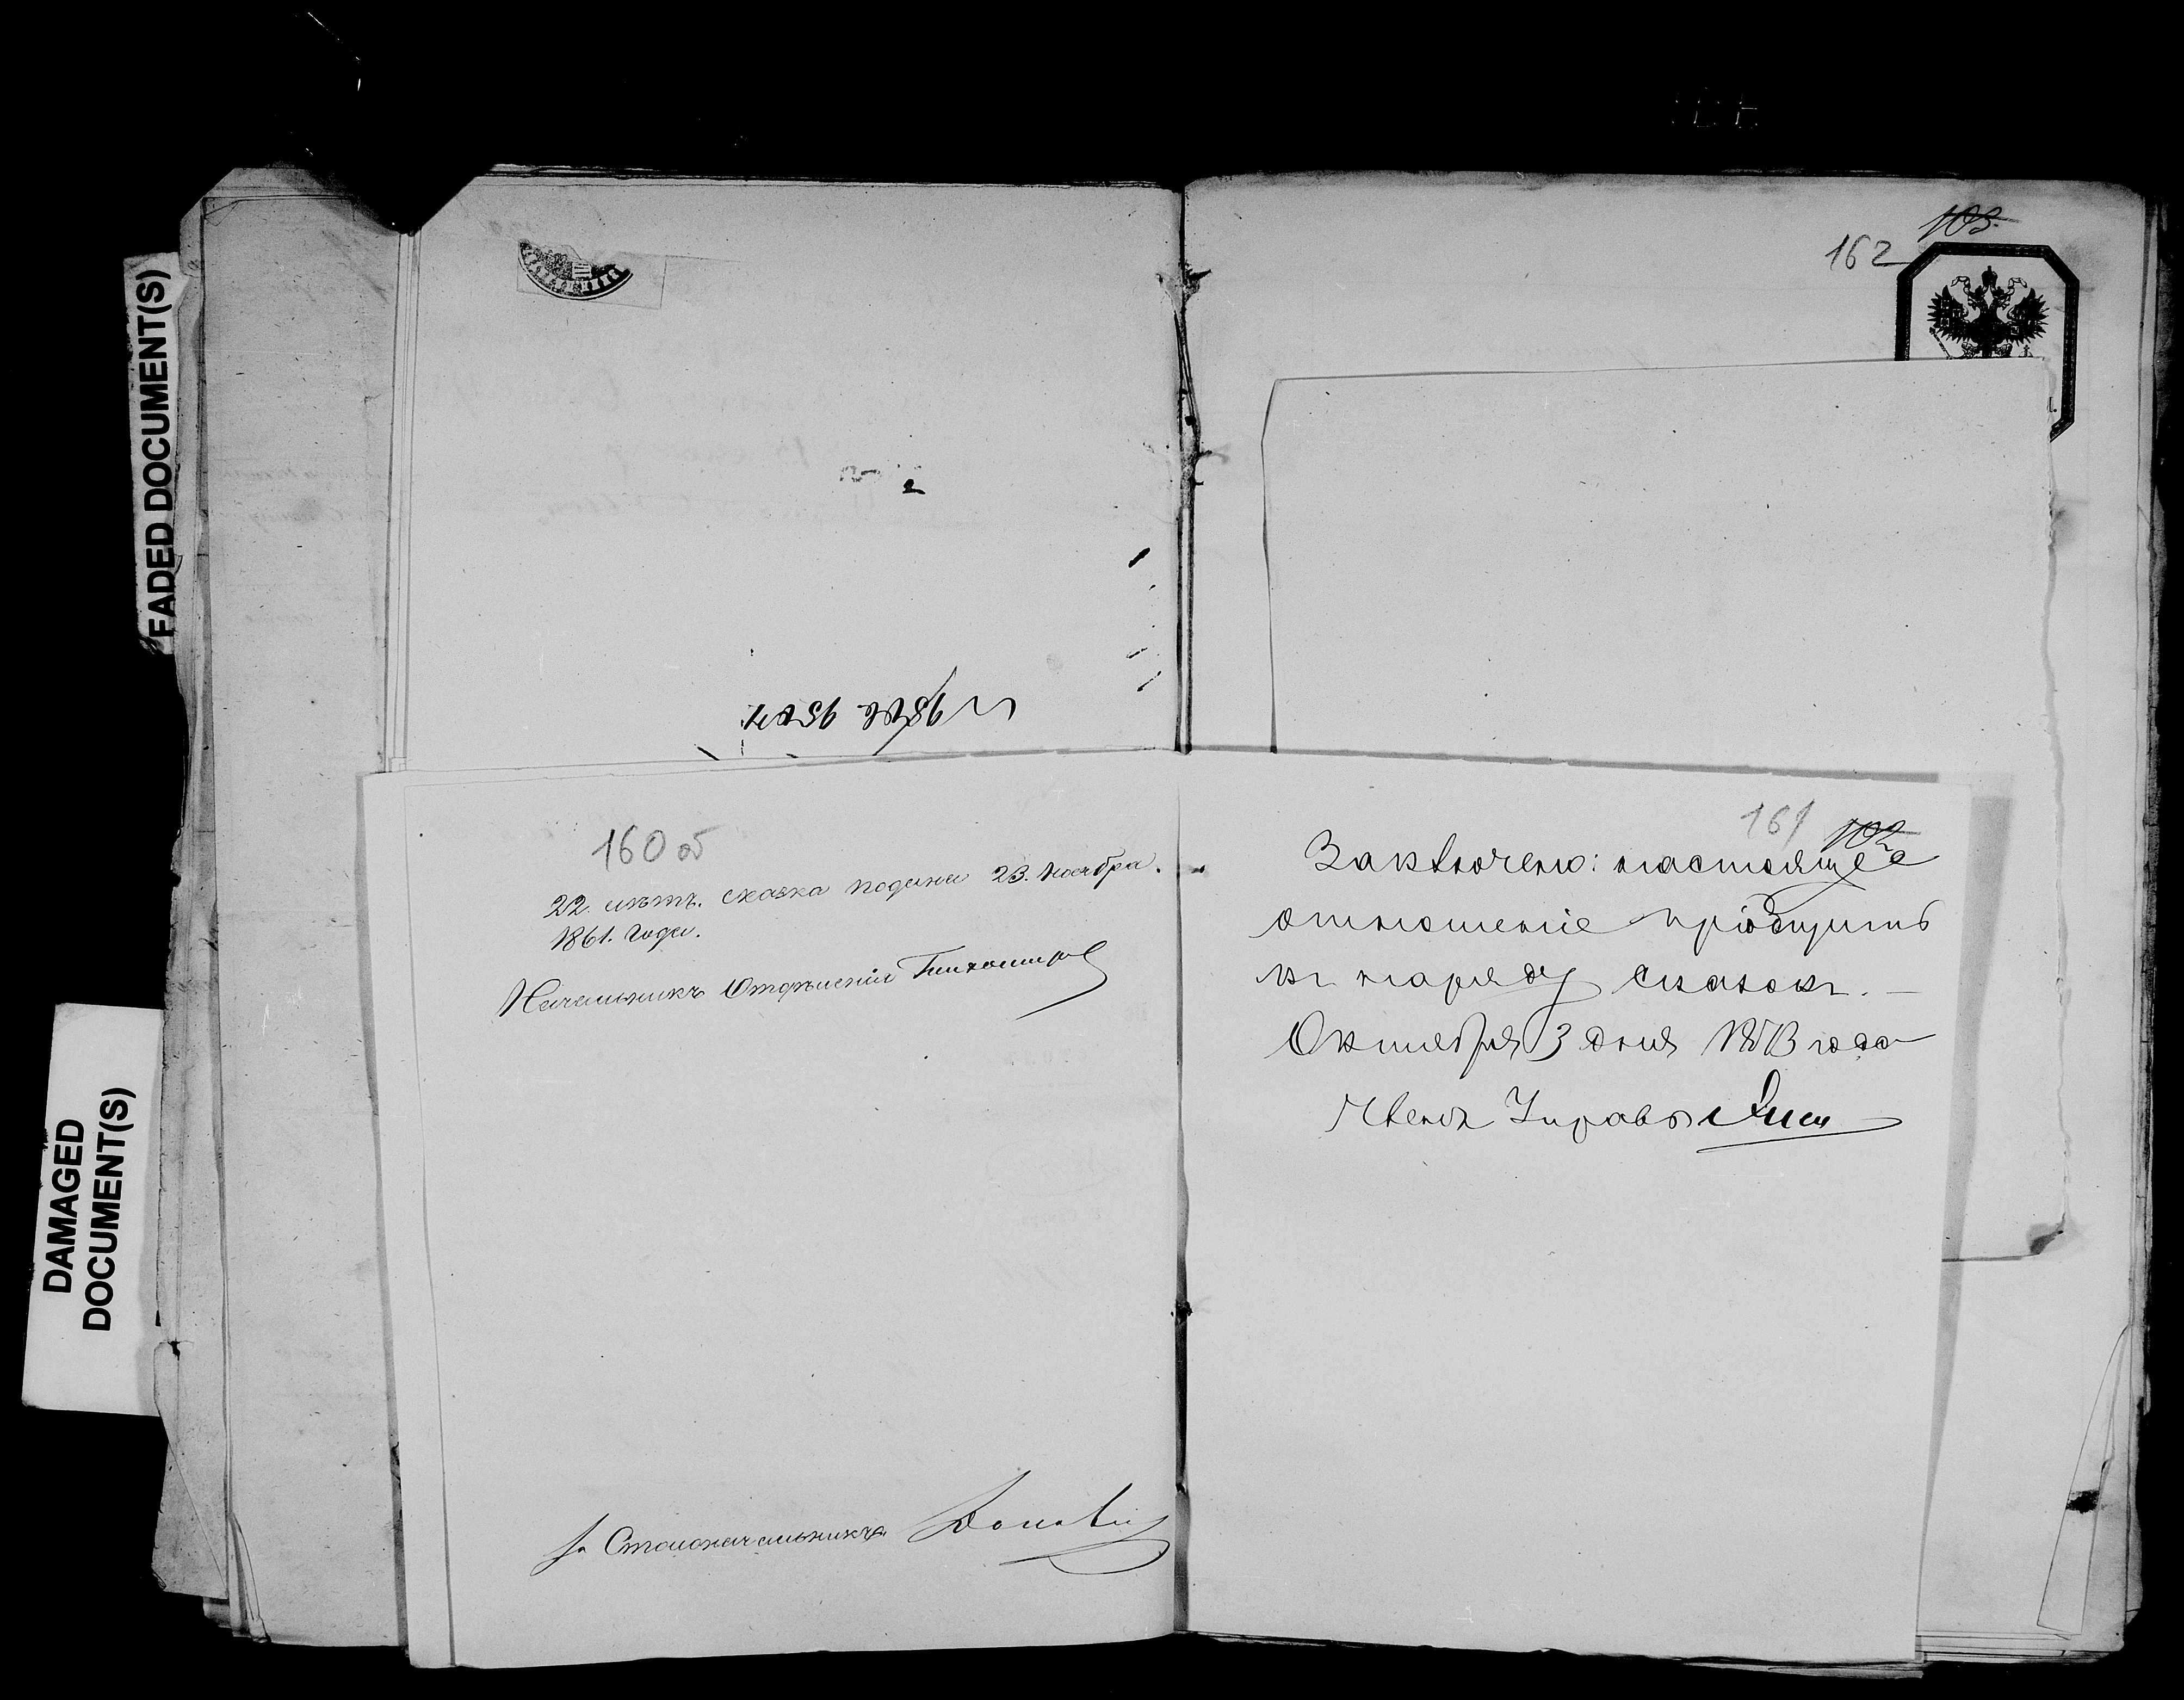 FADED DOCUMENT(S)
DAMAGED
DOCUMENT(S)
160 об
22. лѣтъ. сказка подана 23. Ноября.
1861. года.
Начальникъ Отдѣленія Тихомировъ
За Столоначальника
103.
162
161
102
Заключено: настоящее
отношеніе пріобщить
къ наряду сказокъ. —
Октября 3 дня 1873 года
Членъ Управы